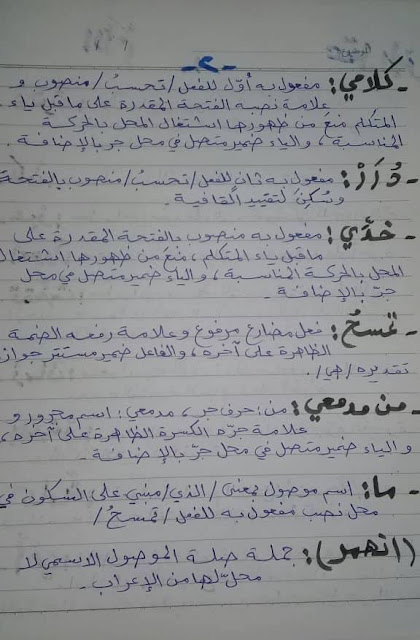 -٢-
- كلامي: مفعول به أوّل للفعل /تحسبُ/ منصوب و
علامة نصبه الفتحة المقدرة على ما قبل ياء
المتكلم منعَ من ظهورها اشتغال المحل بالحركة
المناسبة، والياء ضمير متصل في محل جر بالإضافة.
- دُرَرْ: مفعول به ثان للفعل /تحسبُ/ منصوب بالفتحة
وسُكِّنَ لتقييد القافية.
- خدَّي: مفعول به منصوب بالفتحة المقدرة على
ما قبل ياء المتكلم، منعَ من ظهورها اشتغال
المحل بالحركة المناسبة، والياء ضمير متصل في محل
جرّ بالإضافة.
- تمسحُ: فعل مضارع مرفوع وعلامة رفعه الضمة
الظاهرة على آخره، والفاعل ضمير مستتر جوازاً
تقديره /هي/.
- من مدمعي: من: حرف جر، مدمعي: اسم مجرور و
علامة جرّه الكسرة الظاهرة على آخره،
والياء ضمير متصل في محل جرّ بالإضافة.
- ما: اسم موصول بمعنى /الذي/ مبني على السكون في
محل نصب مفعول به للفعل /تمسحُ/
(انهمل): جملة صلة الموصول الاسمي لا
محلّ لها من الإعراب.